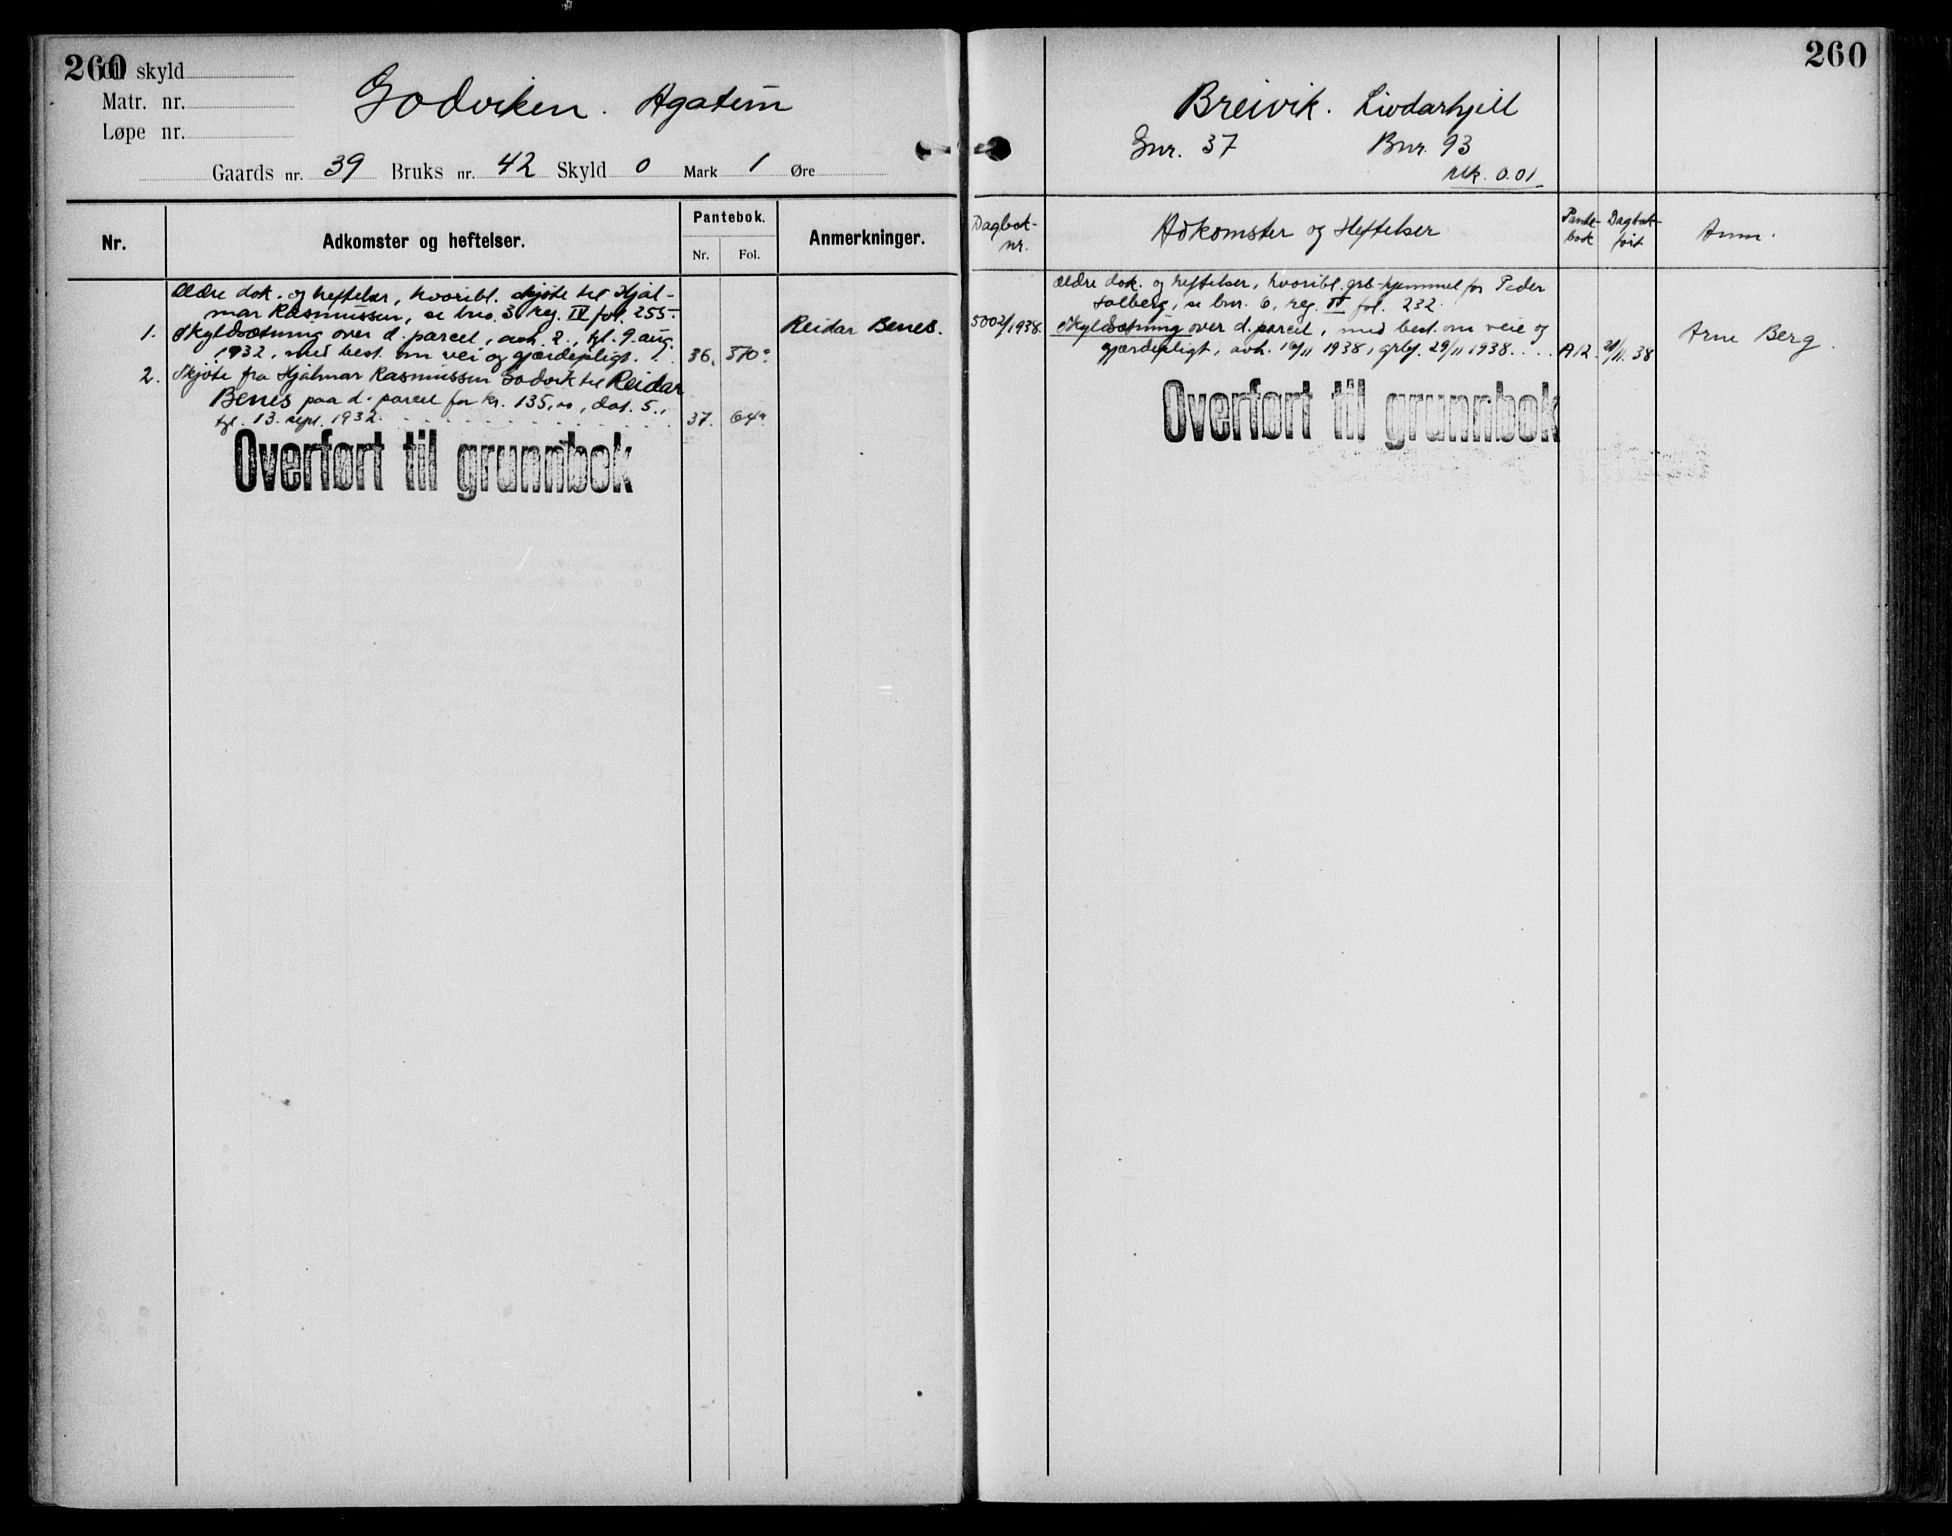 260
Gl. skyld
Matr. nr.
Løpe nr.
Godviken. Agatun
Gaards nr. 39 Bruks nr. 42 Skyld 0 Mark 1 Øre
Nr.
Adkomster og heftelser.
Pantebok.
Nr.
Fol.
Anmerkninger.
Ældre dok. og heftelser, hvoribl. skjøte til Hjal-
mar Rasmussen, se bno. 3 reg. IV fol. 255-
1. Skyldsætning over d. parcel, avh. 2., tgl. 9. aug.
1932, med best. om vei og gjærdepligt. . . 36. 570ª
Reidar Benes.
2. Skjøte fra Hjalmar Rasmussen Godvik til Reidar
Benes paa d. parcel for kr. 135,00, dat. 5.,
tgl. 13. sept. 1932. . . . . . . . . . 37. 64ª
Overført til grunnbok
260
Breivik. Livdarhjell
Gnr. 37 Bnr. 93
Mk. 0.01
Dagbok-
nr.
Adkomster og Heftelser
Pante-
bok
Dagbok-
ført
Anm.
Ældre dok. og heftelser, hvoribl. grb-hjemmel for Peder
Solberg, se bnr. 6, reg. IV fol. 232.
5002/1938. Skyldsætning over d. parcel, med best. om veie og
gjærdepligt, avh. 16/11 1938, grbf. 29/11 1938. . . . A12. 29/11. 38
Arne Berg.
Overført til grunnbok